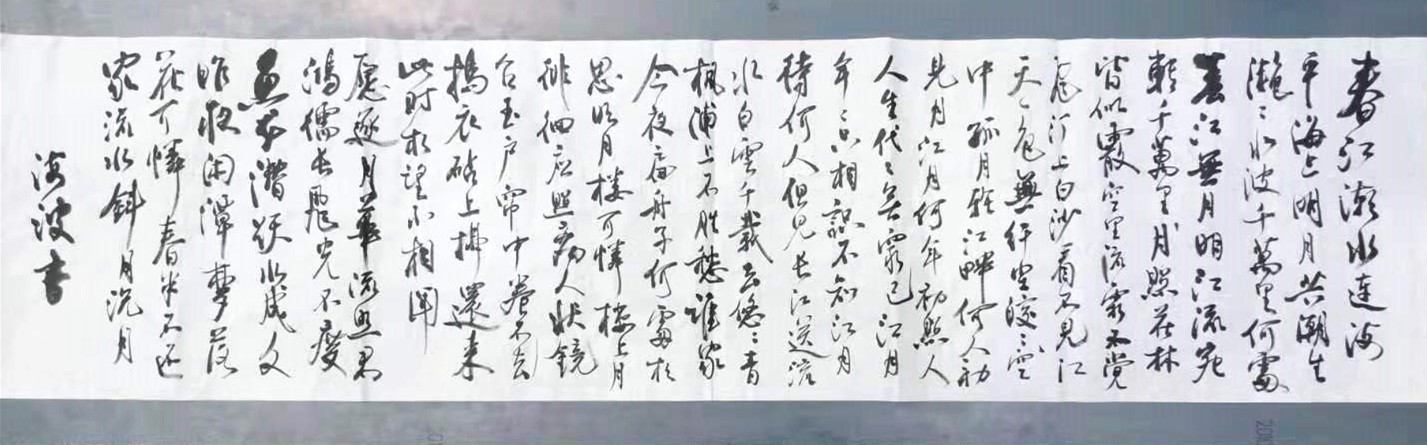 春江潮水連海
平海上明月共潮生
灧〻水波千萬里何處
春江無月明江流宛
轉千萬里月照花林
皆似霰空里流霜不覺
飛汀上白沙看不見江
天一色無纤尘皎〻空
中孤月輪江畔何人初
見月江月何年初照人
人生代〻無窮已江月
年〻只相識不知江月
待何人但見長江送流
水白雲千載去悠〻青
楓浦上不勝愁誰家
今夜扁舟子何處相
思明月樓可憐樓上月
徘徊应照人妝鏡
台玉戶帘中卷不去
搗衣砧上拂還来
此时相望不相闻
愿逐月華流照君
鴻儒长飛光不度
魚龙潛躍水成文
昨夜闲潭梦落
花可憐春半不还
家流水斜月沉月
海波書